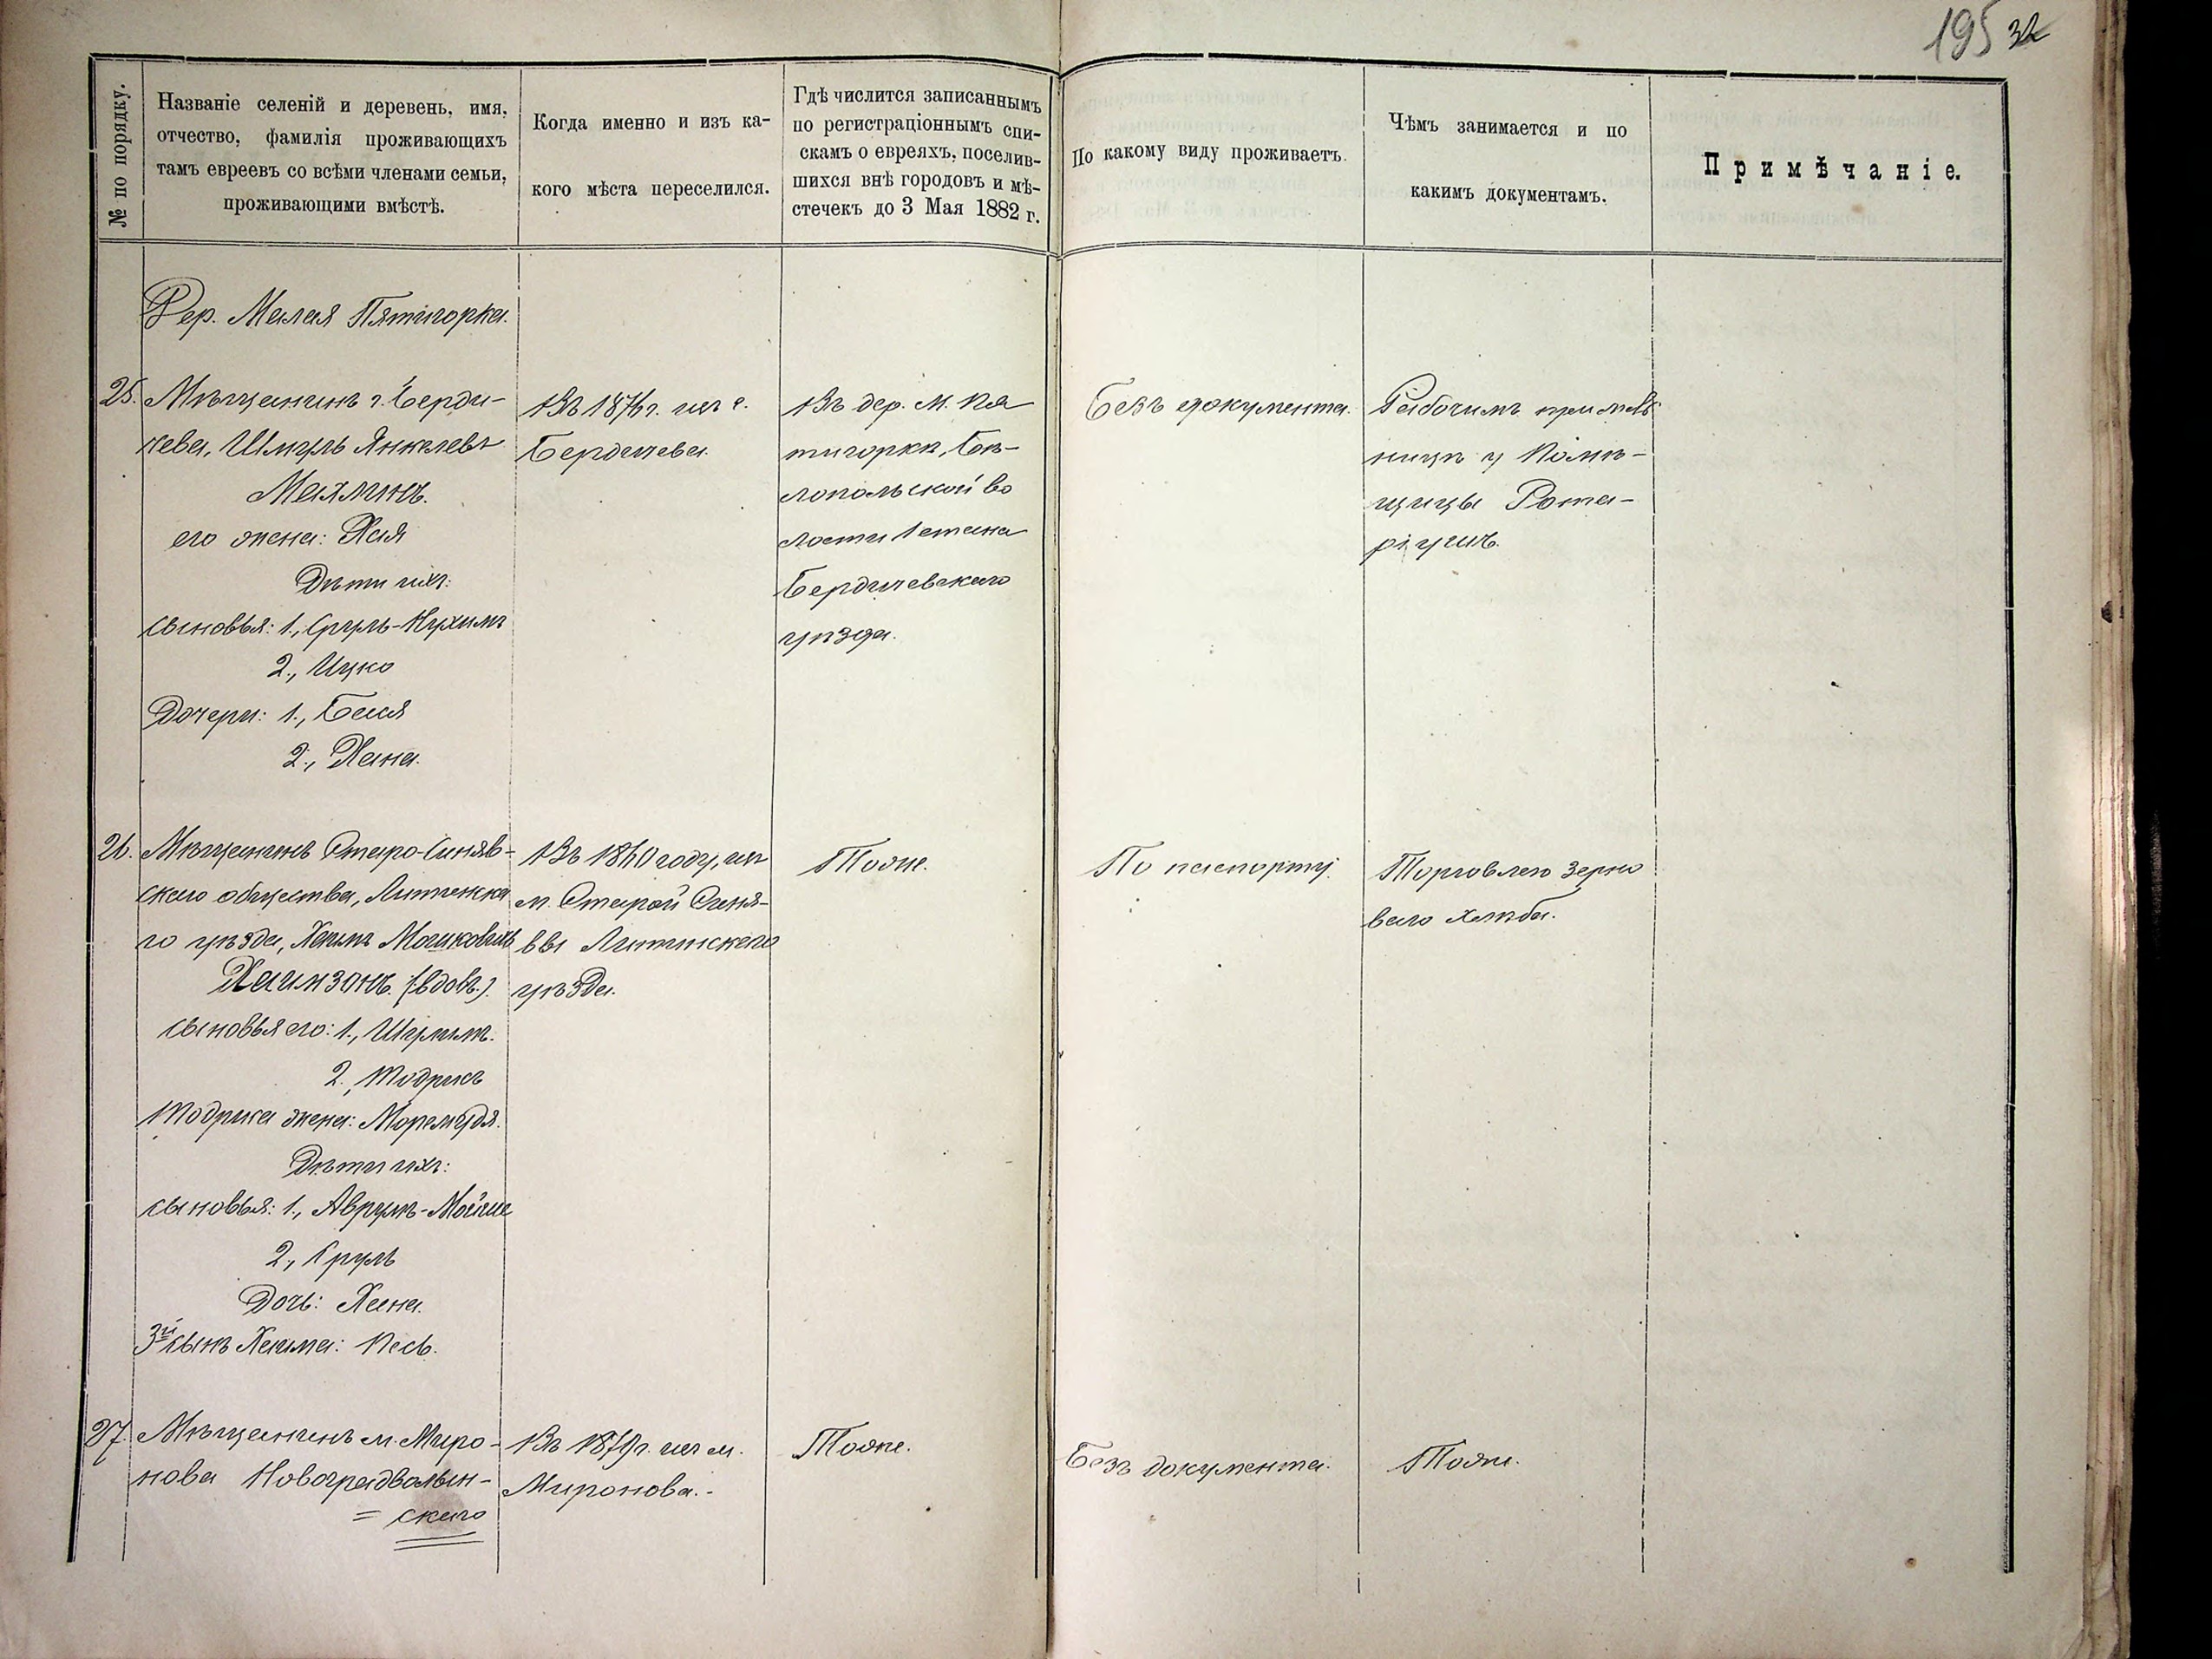 195 32
№ по порядку.
Названіе селеній и деревень, имя,
отчество, фамилія проживающихъ
тамъ евреевъ со всѣми членами семьи,
проживающими вмѣстѣ.
Когда именно и изъ ка-
кого мѣста переселился.
Гдѣ числится записаннымъ
по регистраціоннымъ спи-
скамъ о евреяхъ, поселив-
шихся внѣ городовъ и мѣ-
стечекъ до 3 Мая 1882 г.
По какому виду проживаетъ.
Чѣмъ занимается и по
какимъ документамъ.
Примѣчаніе.
Дер. Малая Пятигорка.
25. Мѣщанинъ г. Берди-
чева, Шмуль Янкелевъ
Махлинъ.
его жена: Хая
Дѣти ихъ:
сыновья: 1., Сруль-Нухимъ
2., Ицко
Дочери: 1., Бася
2., Хана.
Въ 187 г. изъ г.
Бердичева.
Въ дер. М. Пя
тигоркѣ, Бѣ-
лопольской во
лости 1 стана
Бердичевскаго
уѣзда.
Безъ документа.
Рабочимъ при мель
ницѣ у Помѣ-
щицы Рота-
ріушъ.
26. Мѣщанинъ Старо-Синяв-
скаго общества, Литинска
го уѣзда, Хаимъ Мошковичъ
Хаимзонъ. (вдовъ.).
сыновья его: 1., Шулимъ.
2., Тодрисъ
Тодриса жена:
Дѣти ихъ:
сыновья: 1., Аврумъ-Мойше
2., Сруль
Дочь: Хана.
3й сынъ Хаима: Песь.
Въ 1860 году, изъ
м. Старой Синя-
вы Литинскаго
уѣзда.
Тоже.
По паспорту.
Торговлею зерно
ваго хлѣба.
27. Мѣщанинъ м. Миро-
нова Новоградволын-
= скаго
Въ 1879 г. изъ м.
Миронова.-
Тоже.
Безъ документа.
Тоже.